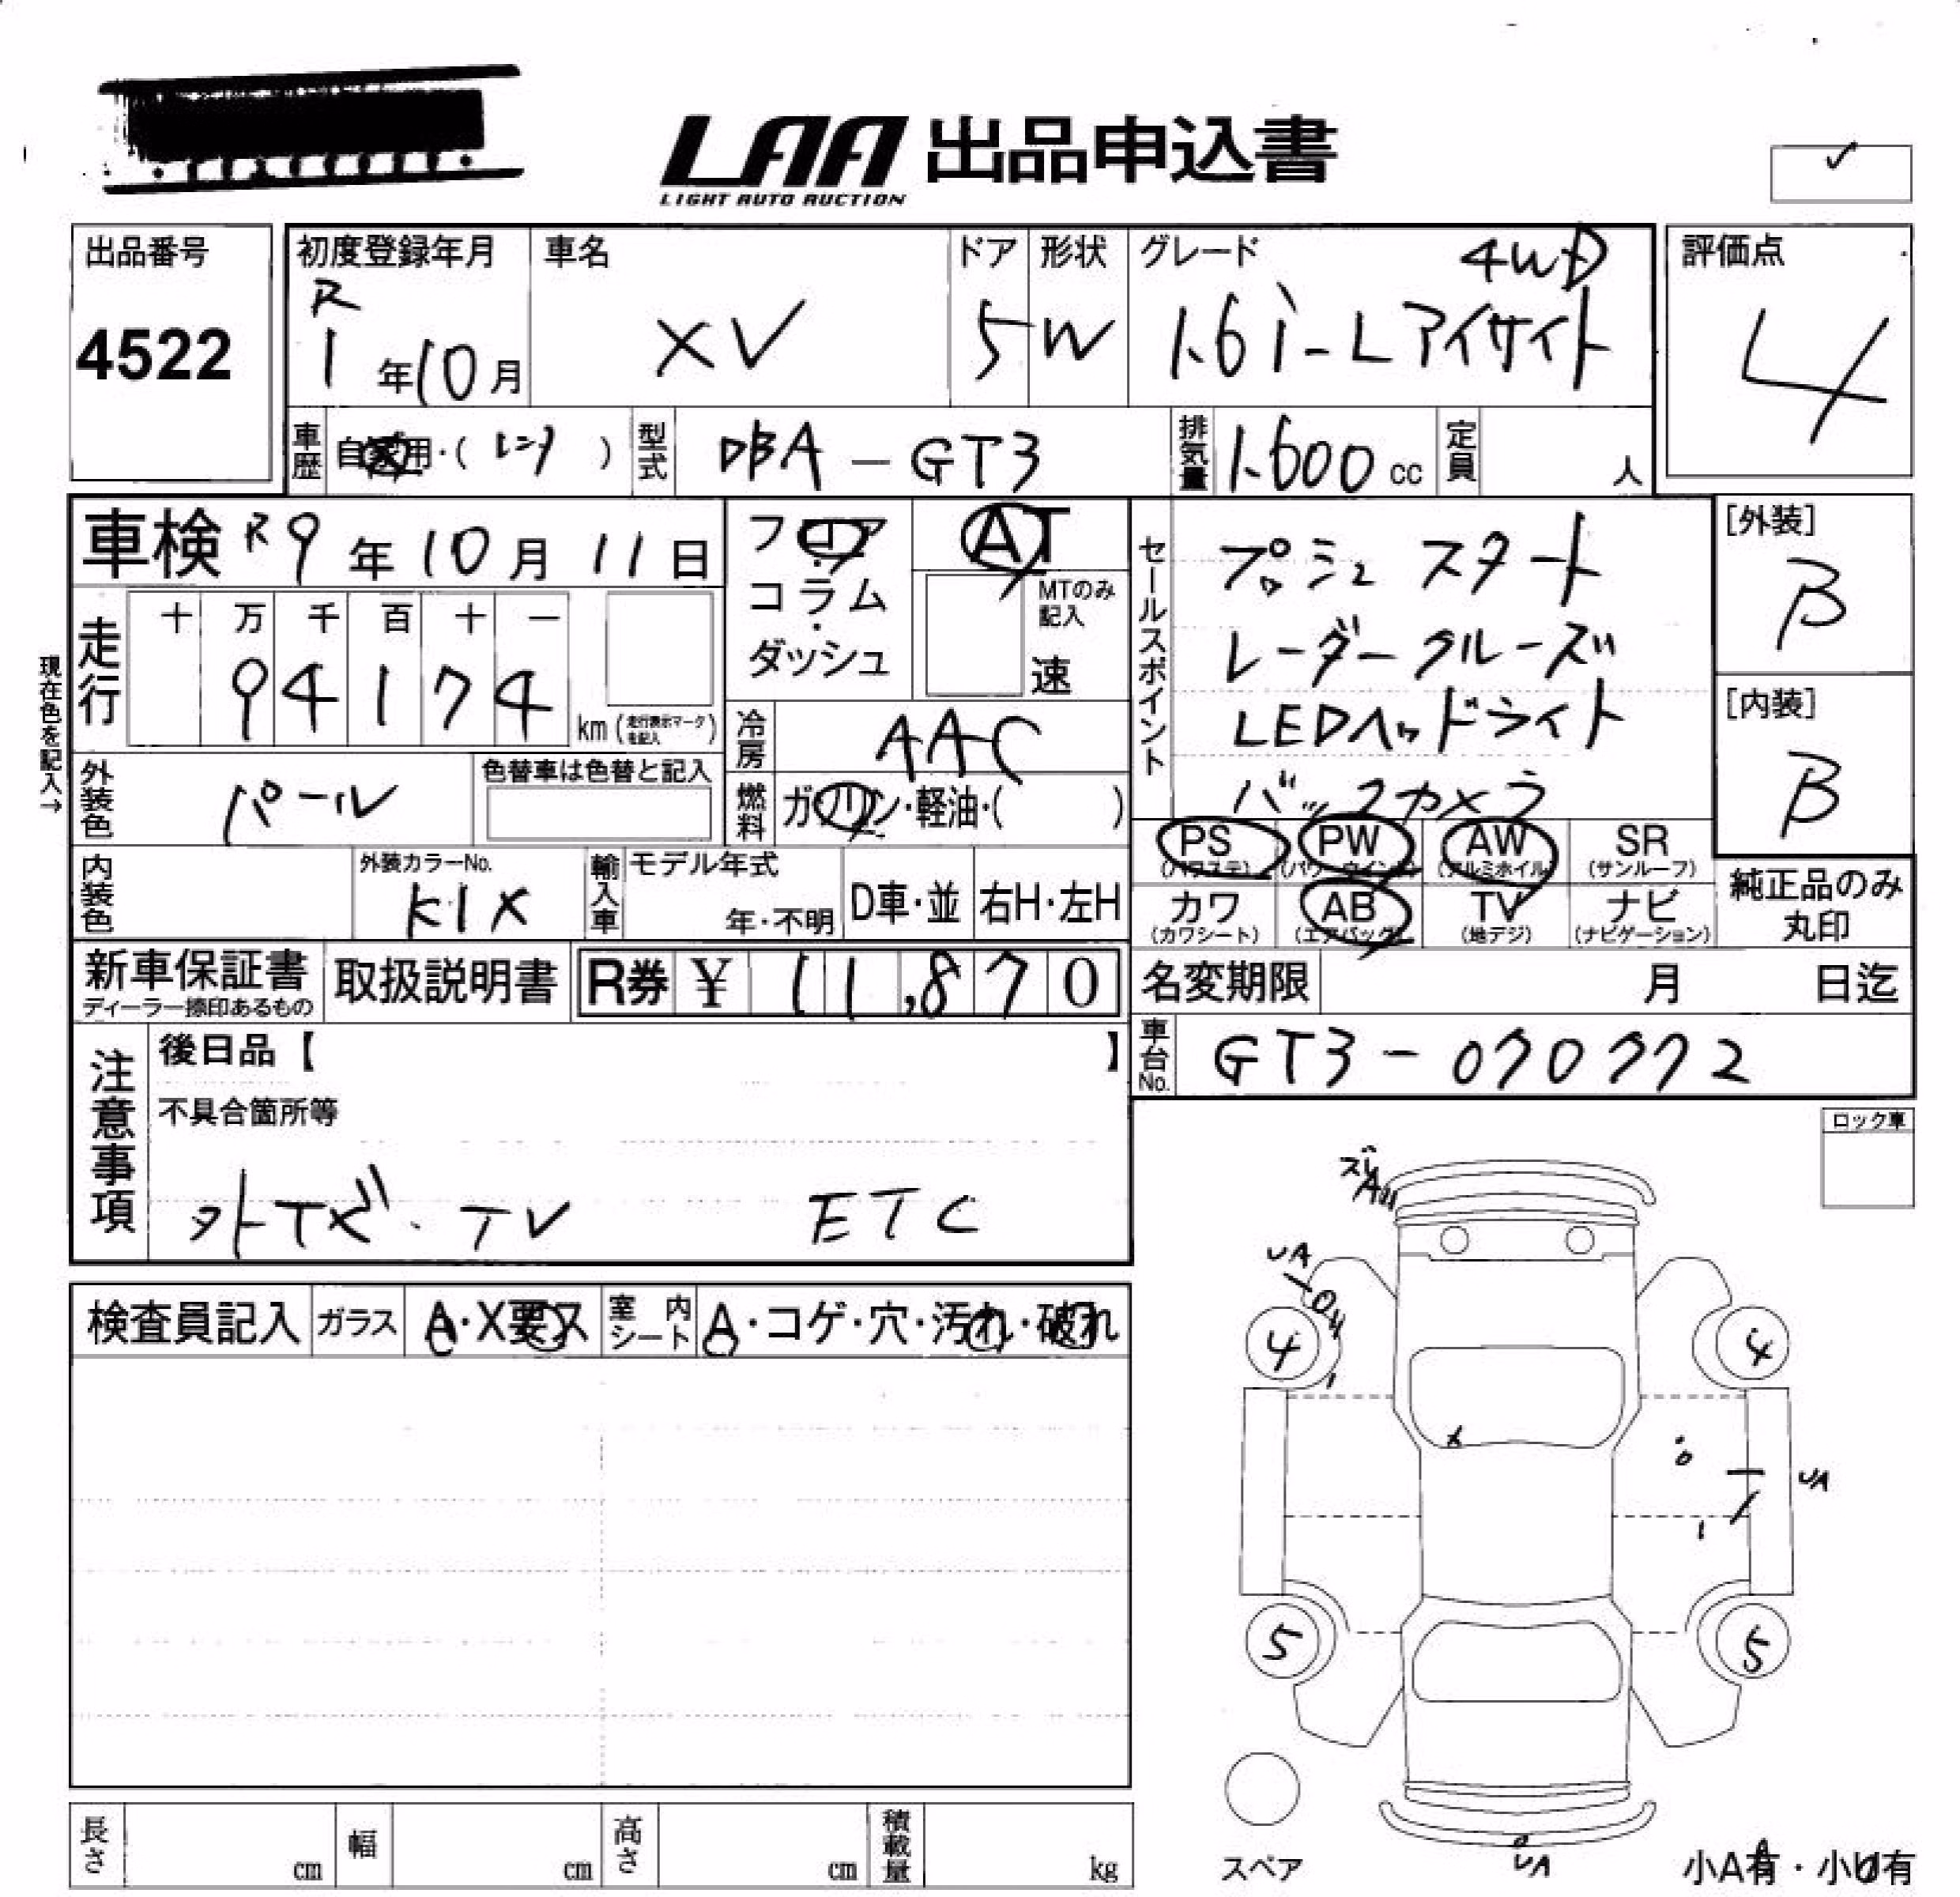 LAA 出品申込書
LIGHT AUTO AUCTION
出品番号
4522
初度登録年月
R
1年10月
車名
XV
ドア
5
形状
W
グレード
4WD
1.6i-Lアイサイト
評価点
4
車歴
自家用・(レンタ)
型式
DBA-GT3
排気量
1.600cc
定員
人
車検 R9年10月11日
フロア
コラム
・
ダッシュ
AT
MTのみ
記入
速
セールスポイント
プッシュスタート
レーダークルーズ
LEDヘッドライト
バックカメラ
[外装]
B
[内装]
B
現在色を記入→
走行
十 万 千 百 十 一
9 4 1 7 4
km(走行表示マークを記入)
冷房
AAC
外装色
パール
色替車は色替と記入
燃料
ガソリン・軽油・( )
PS
(パワステ)
PW
(パワーウインドウ)
AW
(アルミホイル)
SR
(サンルーフ)
内装色
外装カラーNo.
K1X
輸入車
モデル年式
年・不明
D車・並
右H・左H
カワ
(カワシート)
AB
(エアバッグ)
TV
(地デジ)
ナビ
(ナビゲーション)
純正品のみ
丸印
新車保証書
ディーラー捺印あるもの
取扱説明書
R券 ¥ 11,870
名変期限
月 日迄
車台No.
GT3-070772
注意事項
後日品【 】
不具合箇所等
外ナビ・TV ETC
ロック車
検査員記入
ガラス
A・X要ス
室内シート
A・コゲ・穴・汚れ・破れ
UA
4
4
UA
5
5
スペア
UA
小A有・小U有
長さ
cm
幅
cm
高さ
cm
積載量
kg